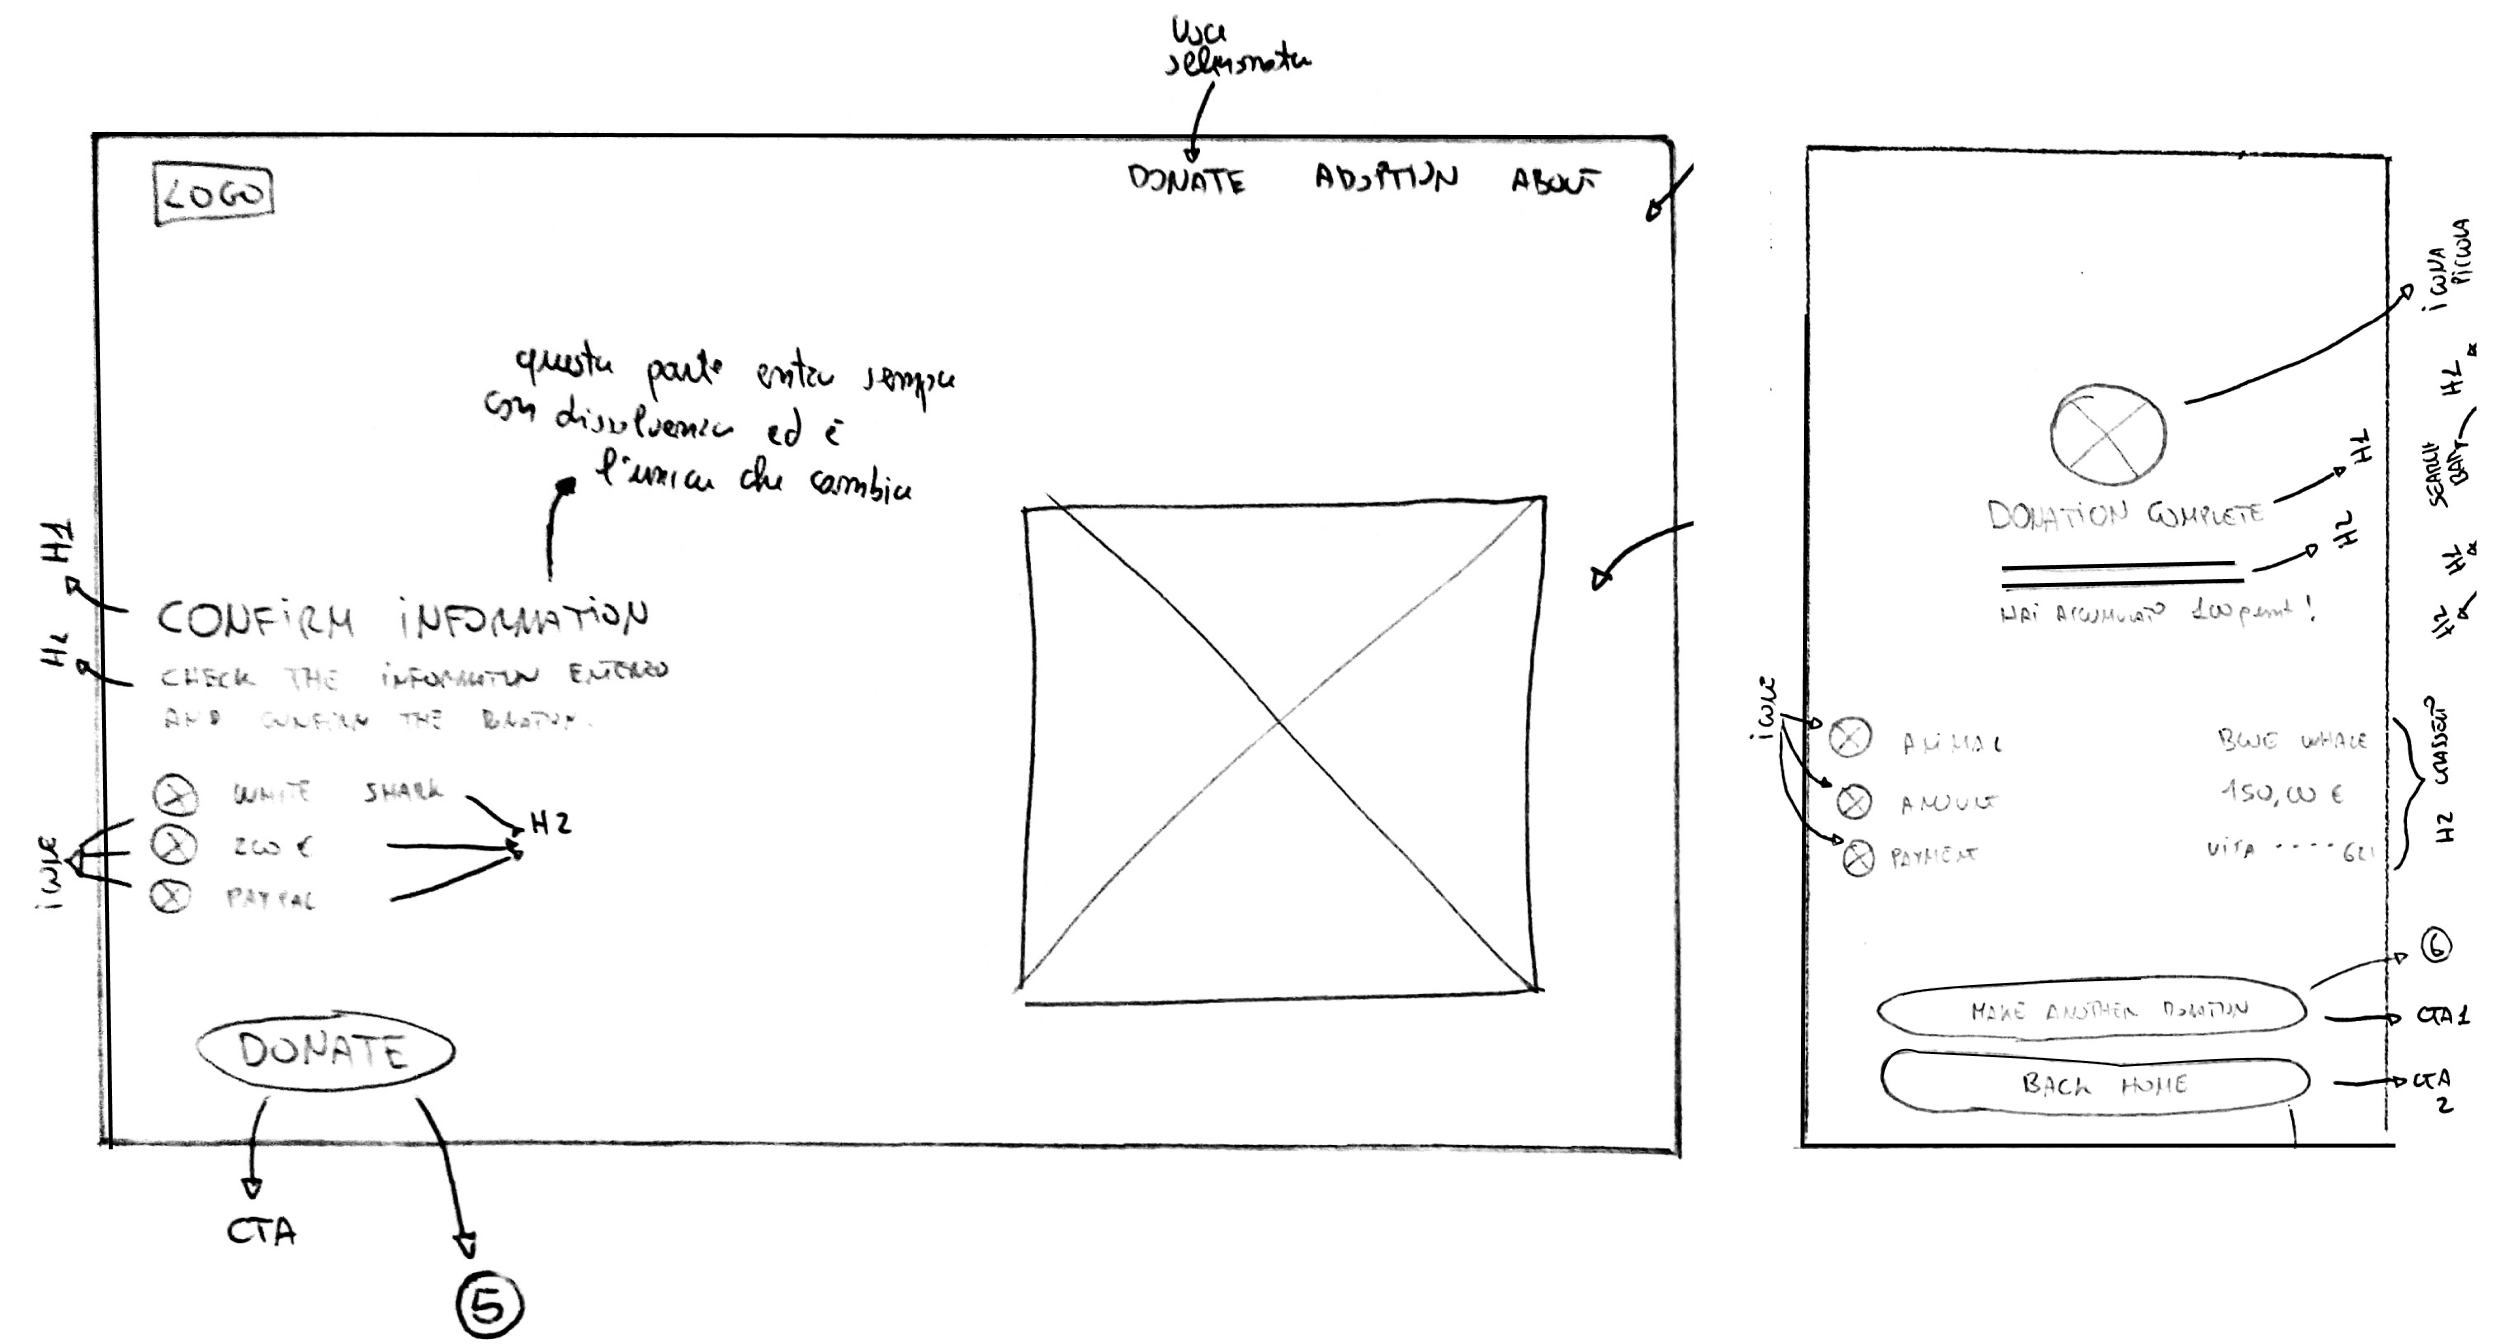 voce
selezionata
LOGO
DONATE ADOPTION ABOUT
questa parte entra sempre
con dissolvenza ed è
l'unica che cambia
H1
H2
CONFIRM INFORMATION
CHECK THE INFORMATION ENTERED
AND CONFIRM THE DONATION.
WHITE SHARK
200 €
PAYPAL
H2
icone
DONATE
CTA
5
icona
piccola
H1
DONATION COMPLETE
H2
HAI ACCUMULATO 100 punti!
icone
ANIMAL BLUE WHALE
AMOUNT 150,00 €
PAYMENT
H2
MAKE ANOTHER DONATION
6
CTA1
BACK HOME
CTA
2
H1
SEARCH
BAR
H1
H2